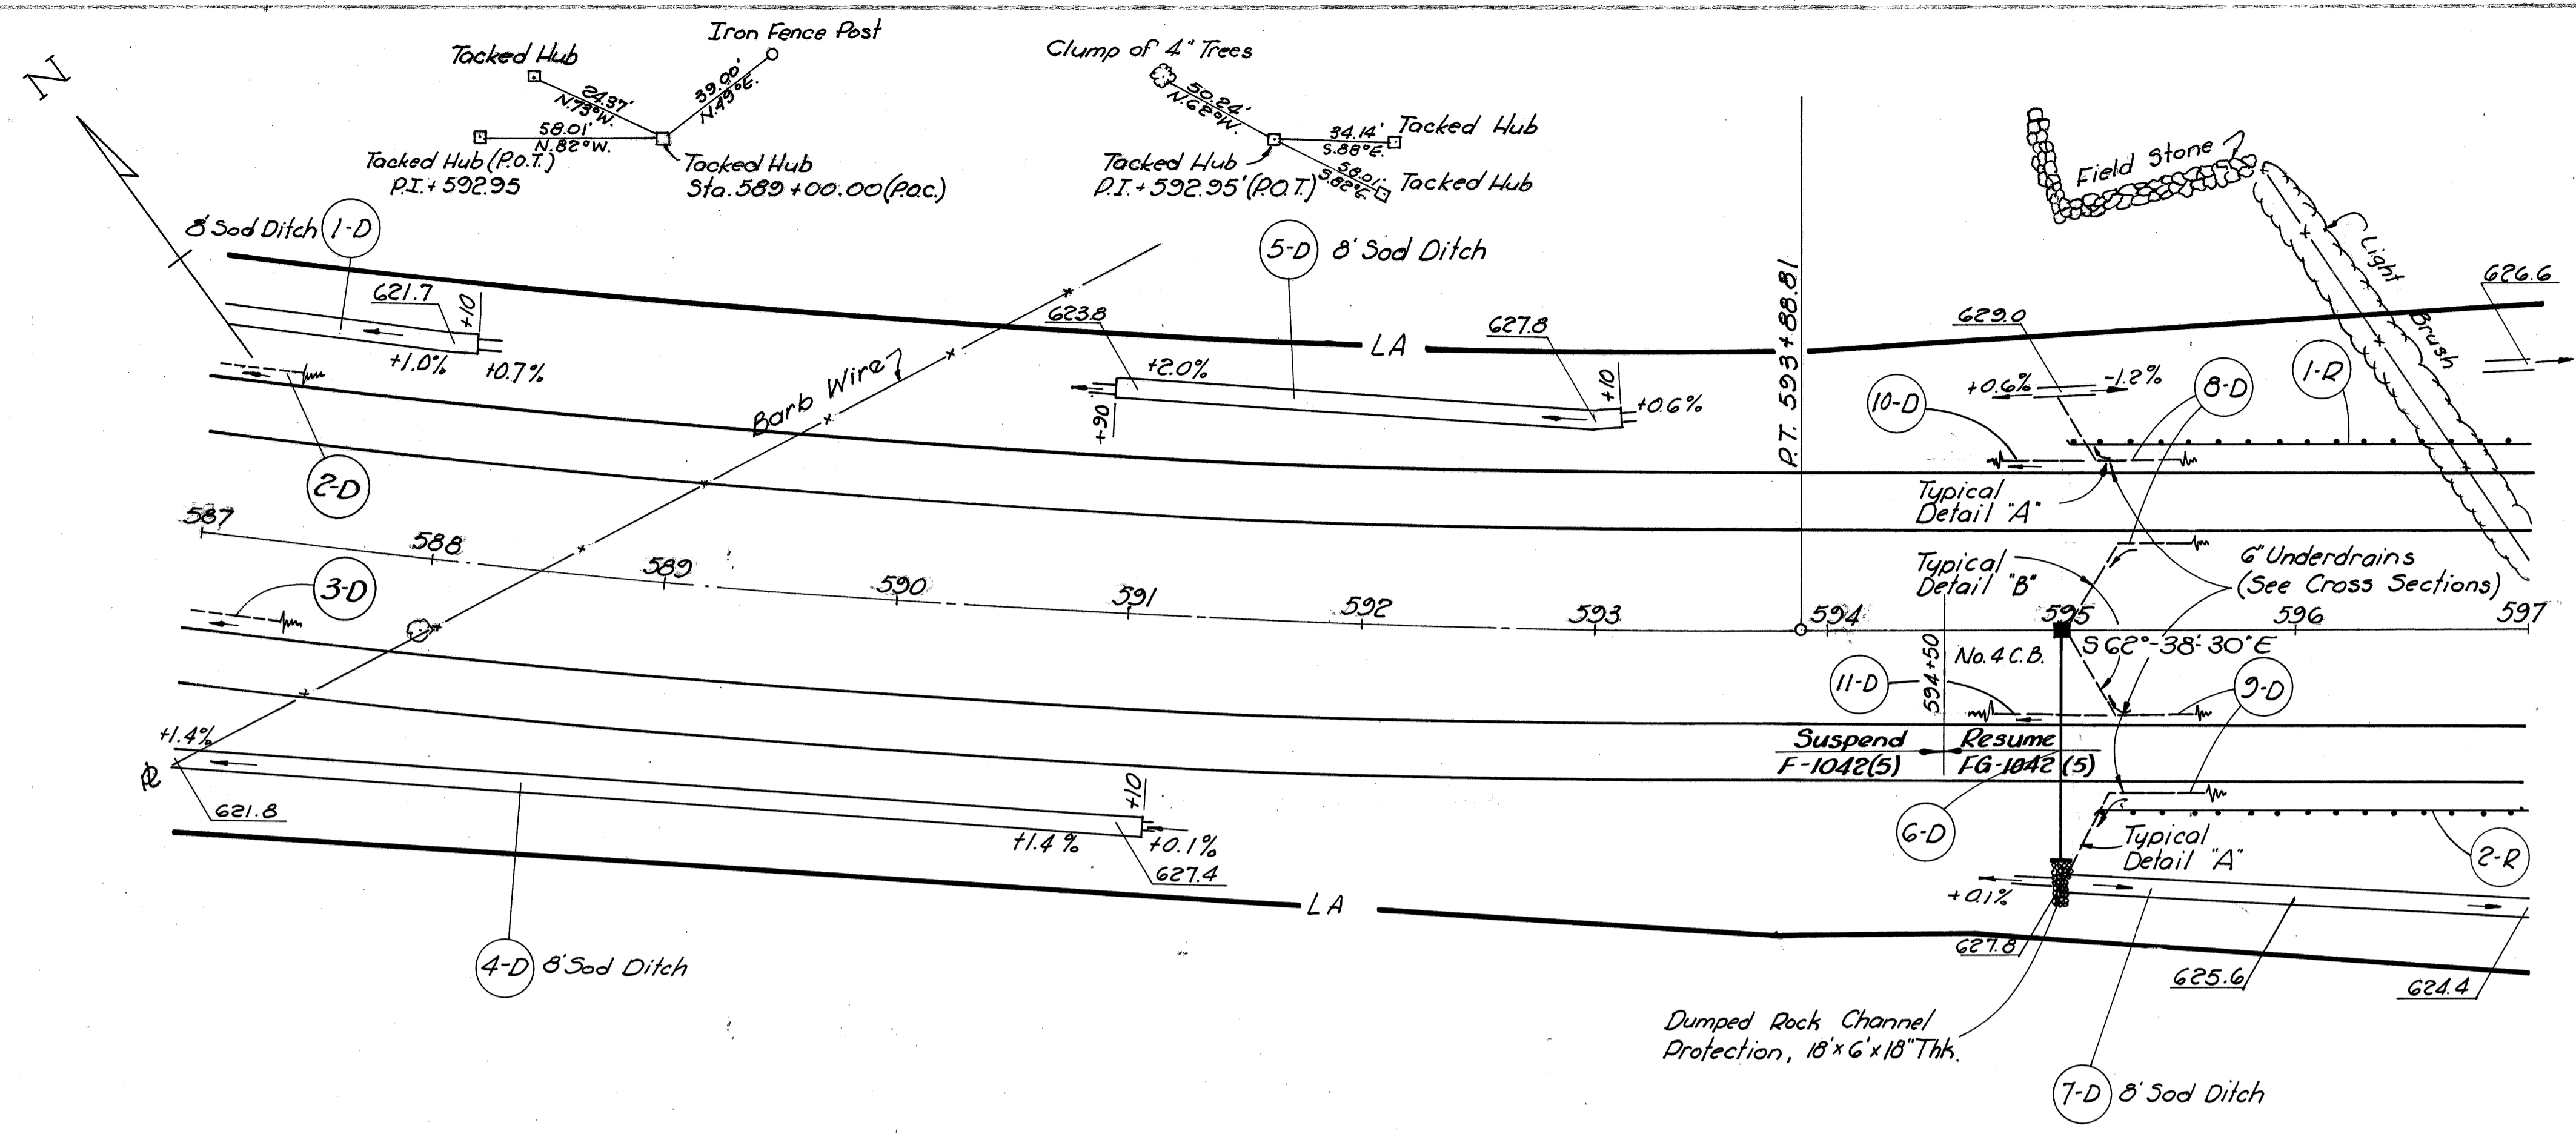 N
Tacked Hub
Iron Fence Post
24.37'
N.73°W.
39.00'
N.49°E.
58.01'
N.82°W.
Tacked Hub (P.O.T.)
P.I.+592.95
Tacked Hub
Sta. 589+00.00 (P.O.C.)
Clump of 4" Trees
50.24'
N.62°W.
34.14'
S.88°E.
Tacked Hub
58.01'
S.82°E.
Tacked Hub
Tacked Hub
P.I.+592.95' (P.O.T.)
Field Stone
Light Brush
8' Sod Ditch
1-D
621.7
+10
+1.0%
+0.7%
2-D
Barb Wire
5-D
8' Sod Ditch
623.8
+2.0%
627.8
+10
+90
+0.6%
LA
P.T. 593+88.81
629.0
626.6
+0.6%
-1.2%
8-D
1-R
10-D
Typical
Detail "A"
Typical
Detail "B"
6" Underdrains
(See Cross Sections)
587
588
589
590
591
592
593
594
595
596
597
3-D
594+50
No. 4 C.B.
S 62°-38'-30" E
11-D
9-D
Suspend
F-1042(5)
Resume
FG-1042 (5)
+1.4%
621.8
+10
+1.4%
+0.1%
627.4
6-D
Typical
Detail "A"
2-R
LA
+0.1%
627.8
625.6
624.4
4-D
8' Sod Ditch
Dumped Rock Channel
Protection, 18'x6'x18" Thk.
7-D
8' Sod Ditch